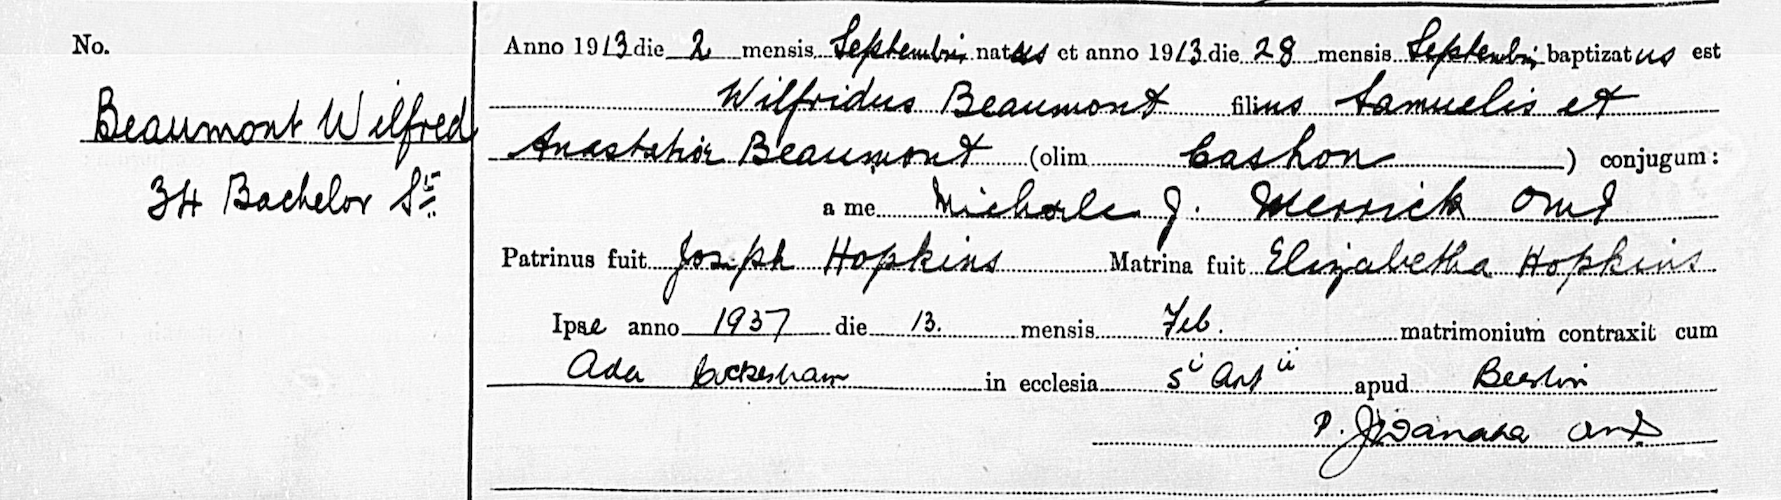 No.
Beaumont Wilfred
34 Bachelor St
Anno 1913 die 2 mensis Septembris natus et anno 1913 die 28 mensis Septembris baptizatus est
Wilfridus Beaumont filius Samuelis et
Anastatiæ Beaumont (olim Cashon) conjugum:
a me Michaele J. Merrick OMI
Patrinus fuit Joseph Hopkins Matrina fuit Elizabetha Hopkins
Ipse anno 1937 die 13. mensis Feb. matrimonium contraxit cum
Ada in ecclesia Sⁱ Antⁱⁱ apud
P. OMI